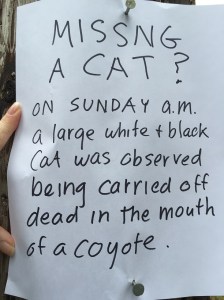 MISSNG
A CAT?
ON SUNDAY a.m.
a large white + black
Cat was observed
being carried off
dead in the mouth
of a coyote.